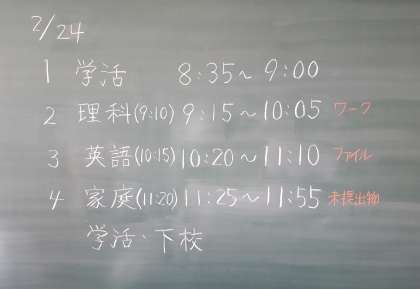 2/24
1 学活 8:35～9:00
2 理科(9:10) 9:15～10:05 ワーク
3 英語(10:15) 10:20～11:10 ファイル
4 家庭(11:20) 11:25～11:55 未提出物
学活・下校